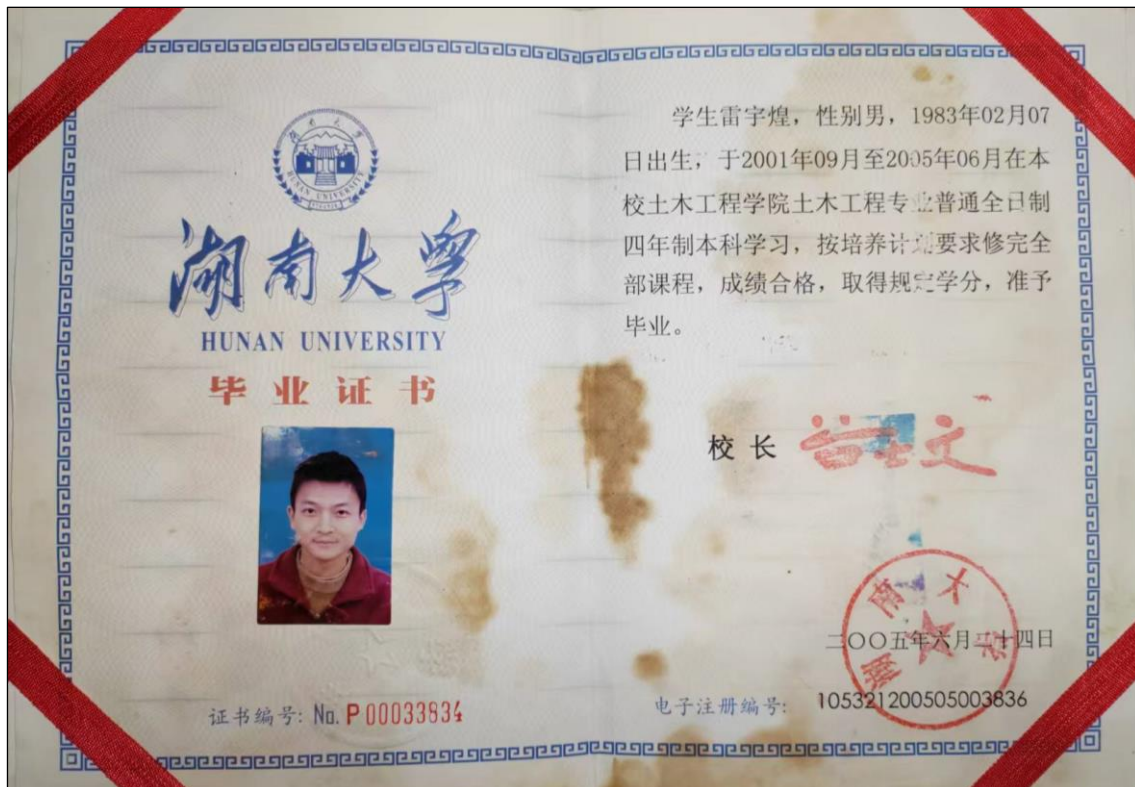 湖南大學
HUNAN UNIVERSITY
湖南大学
HUNAN UNIVERSITY
毕业证书
证书编号: No. P 00033834
学生雷宇煌，性别男，1983年02月07
日出生，于2001年09月至2005年06月在本
校土木工程学院土木工程专业普通全日制
四年制本科学习，按培养计划要求修完全
部课程，成绩合格，取得规定学分，准予
毕业。
校长
湖南大学
二〇〇五年六月二十四日
电子注册编号: 105321200505003836